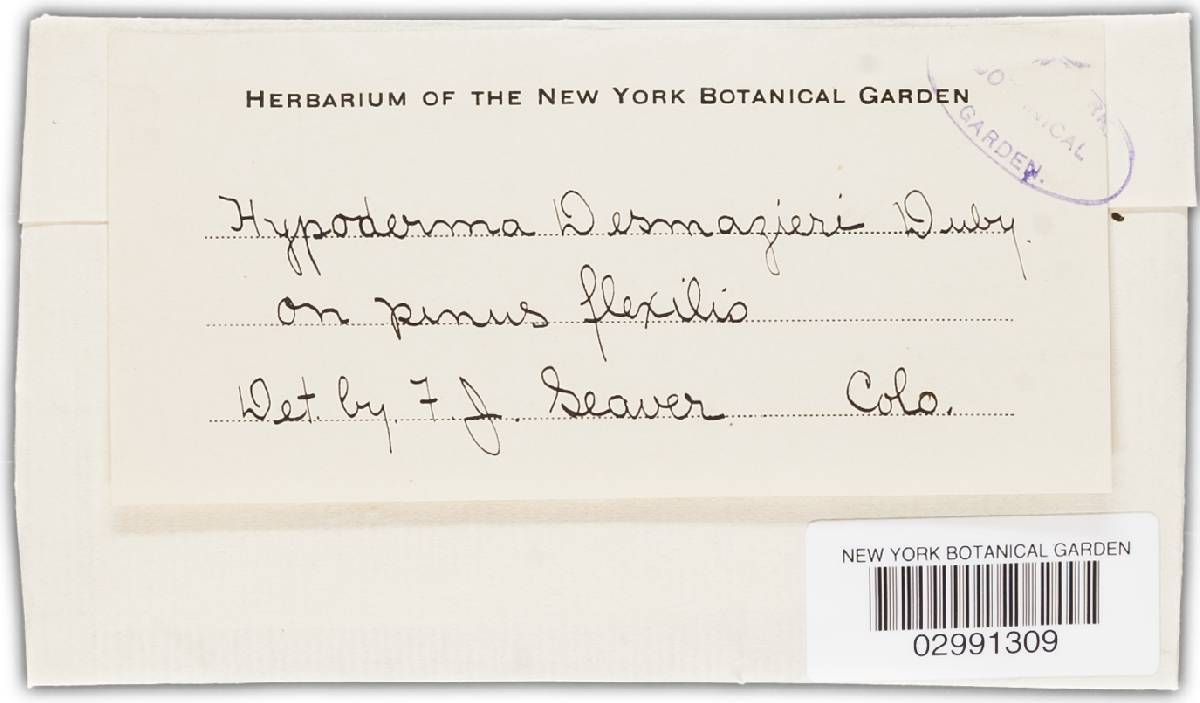 HERBARIUM OF THE NEW YORK BOTANICAL GARDEN
GARDEN.
Hypoderma Desmazieri Duby.
on pinus flexilis
Det. by. F. J. Seaver. Colo.
NEW YORK BOTANICAL GARDEN
02991309